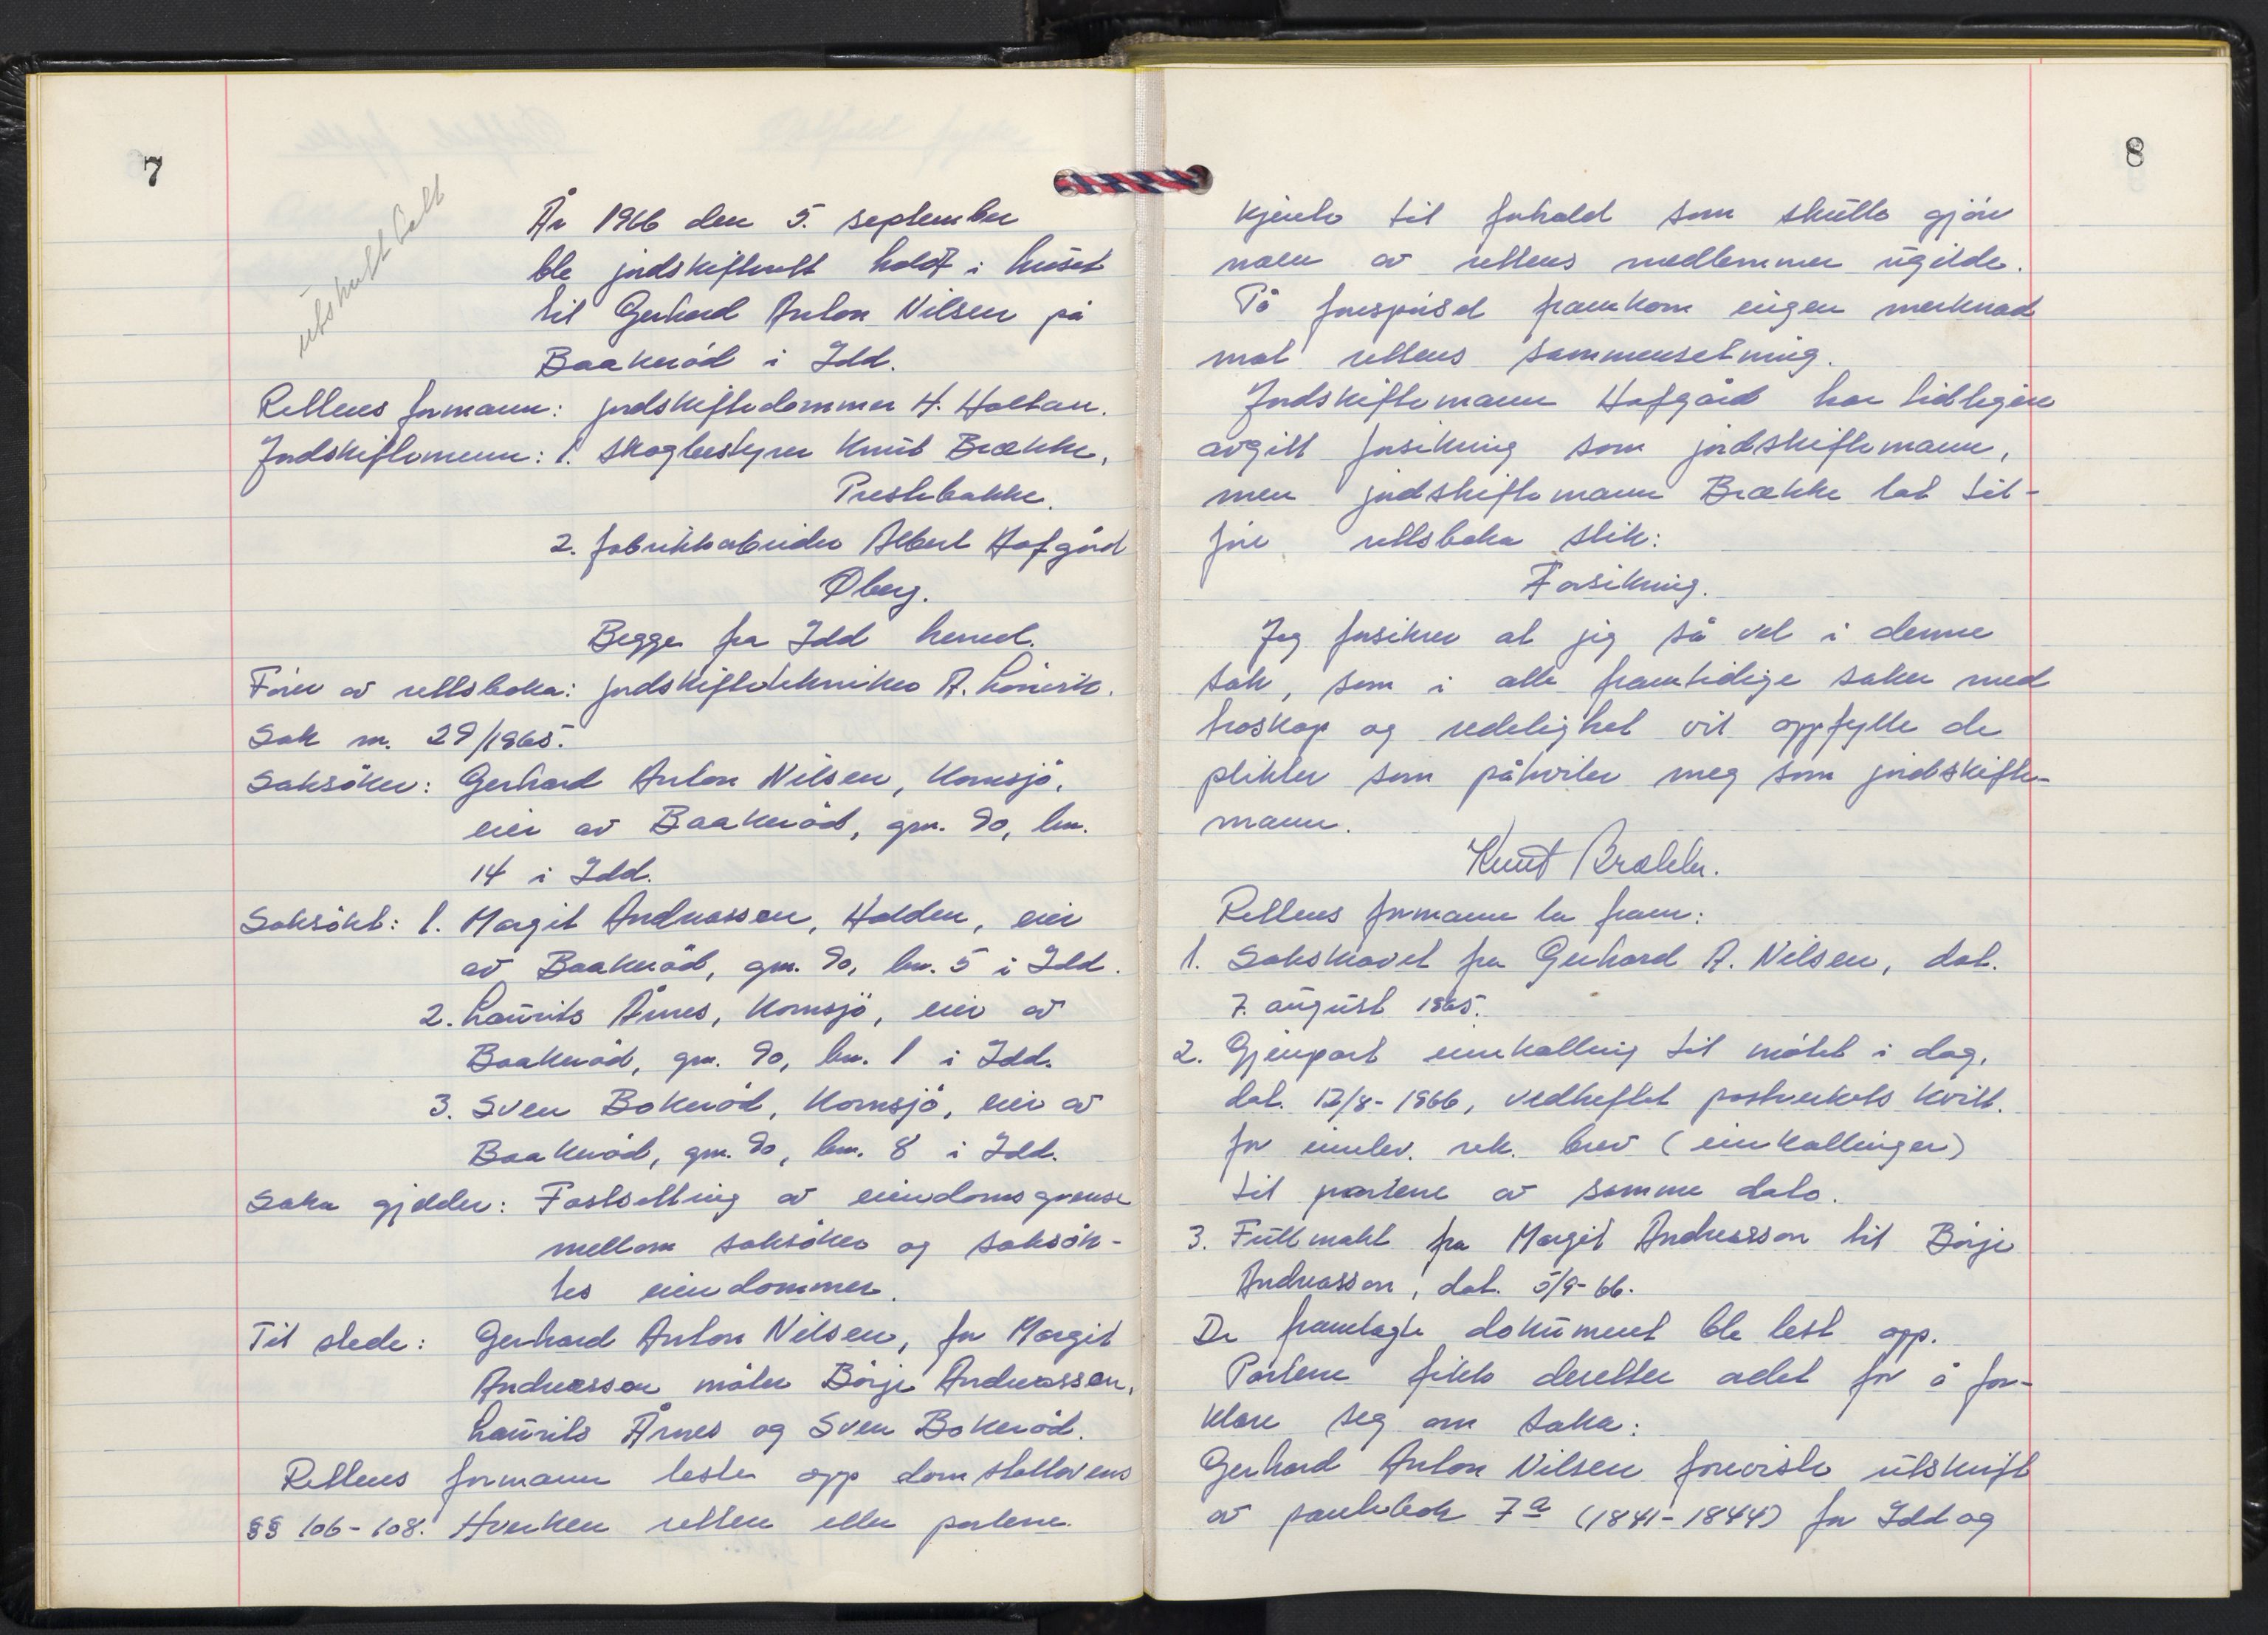 7
utskrift
År 1966 den 5. september
ble jordskifterett holdt i huset
til Gerhard Anton Nilsen på
Baakerød i Idd.
Rettens formann: jordskiftedommer H. Holtan.
Jordskiftemenn: 1. skogbestyrer Knut Brække,
Prestebakke.
2. fabrikkarbeider Albert Hofgård
Øberg.
Begge fra Idd herred.
Fører av rettsboka: jordskiftetekniker A. Lönvik.
Sak nr. 29/1965.
Saksøker: Gerhard Anton Nilsen, Kornsjø,
eier av Baakerød, gnr. 90, bnr.
14 i Idd.
Saksøkt: 1. Margit Andreassen, Halden, eier
av Baakerød, gnr. 90, bnr. 5 i Idd.
2. Laurits Årnes, Kornsjø, eier av
Baakerød, gnr. 90, bnr. 1 i Idd.
3. Sven Bokerød, Kornsjø, eier av
Baakerød, gnr. 90, bnr. 8 i Idd.
Saka gjelder: Fastsetting av eiendomsgrense
mellom saksøker og saksøk-
tes eiendommer.
Til stede: Gerhard Anton Nilsen, for Margit
Andreassen møter Børje Andreassen,
Laurits Årnes og Sven Bokerød.
Rettens formann leste opp domstollovens
§§ 106-108. Hverken retten eller partene
8
kjente til forhold som skulle gjøre
noen av rettens medlemmer ugilde.
På forespørsel framkom ingen merknad
mot rettens sammensetning.
Jordskiftemann Hofgård har tidligere
avgitt forsikring som jordskiftemann,
men jordskiftemann Brække lot til-
føre rettsboka slik:
Forsikring.
Jeg forsikrer at jeg så vel i denne
sak, som i alle framtidige saker med
troskap og redelighet vil oppfylle de
plikter som påhviler meg som jordskifte-
mann.
Knut Brække.
Rettens formann la fram:
1. Sakskravet fra Gerhard A. Nilsen, dat.
7. august 1965.
2. Gjenpart innkalling til møtet i dag,
dat. 12/8-1966, vedheftet postverkets kvitt.
for innlev. rek. brev (innkallinger)
til partene av samme dato.
3. Fullmakt fra Margit Andreasson til Børje
Andreasson, dat. 5/9-66.
De framlagte dokument ble lest opp.
Partene fikk deretter ordet for å for-
klare seg om saka:
Gerhard Anton Nilsen foreviste utskrift
av pantebok 7a (1841-1844) for Idd og